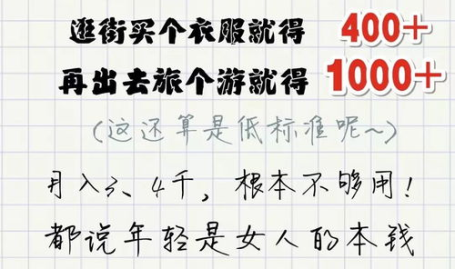 逛街买个衣服就得 400+
再出去旅个游就得 1000+
(这还算是低标准呢~)
月入3、4千，根本不够用！
都说年轻是女人的本钱